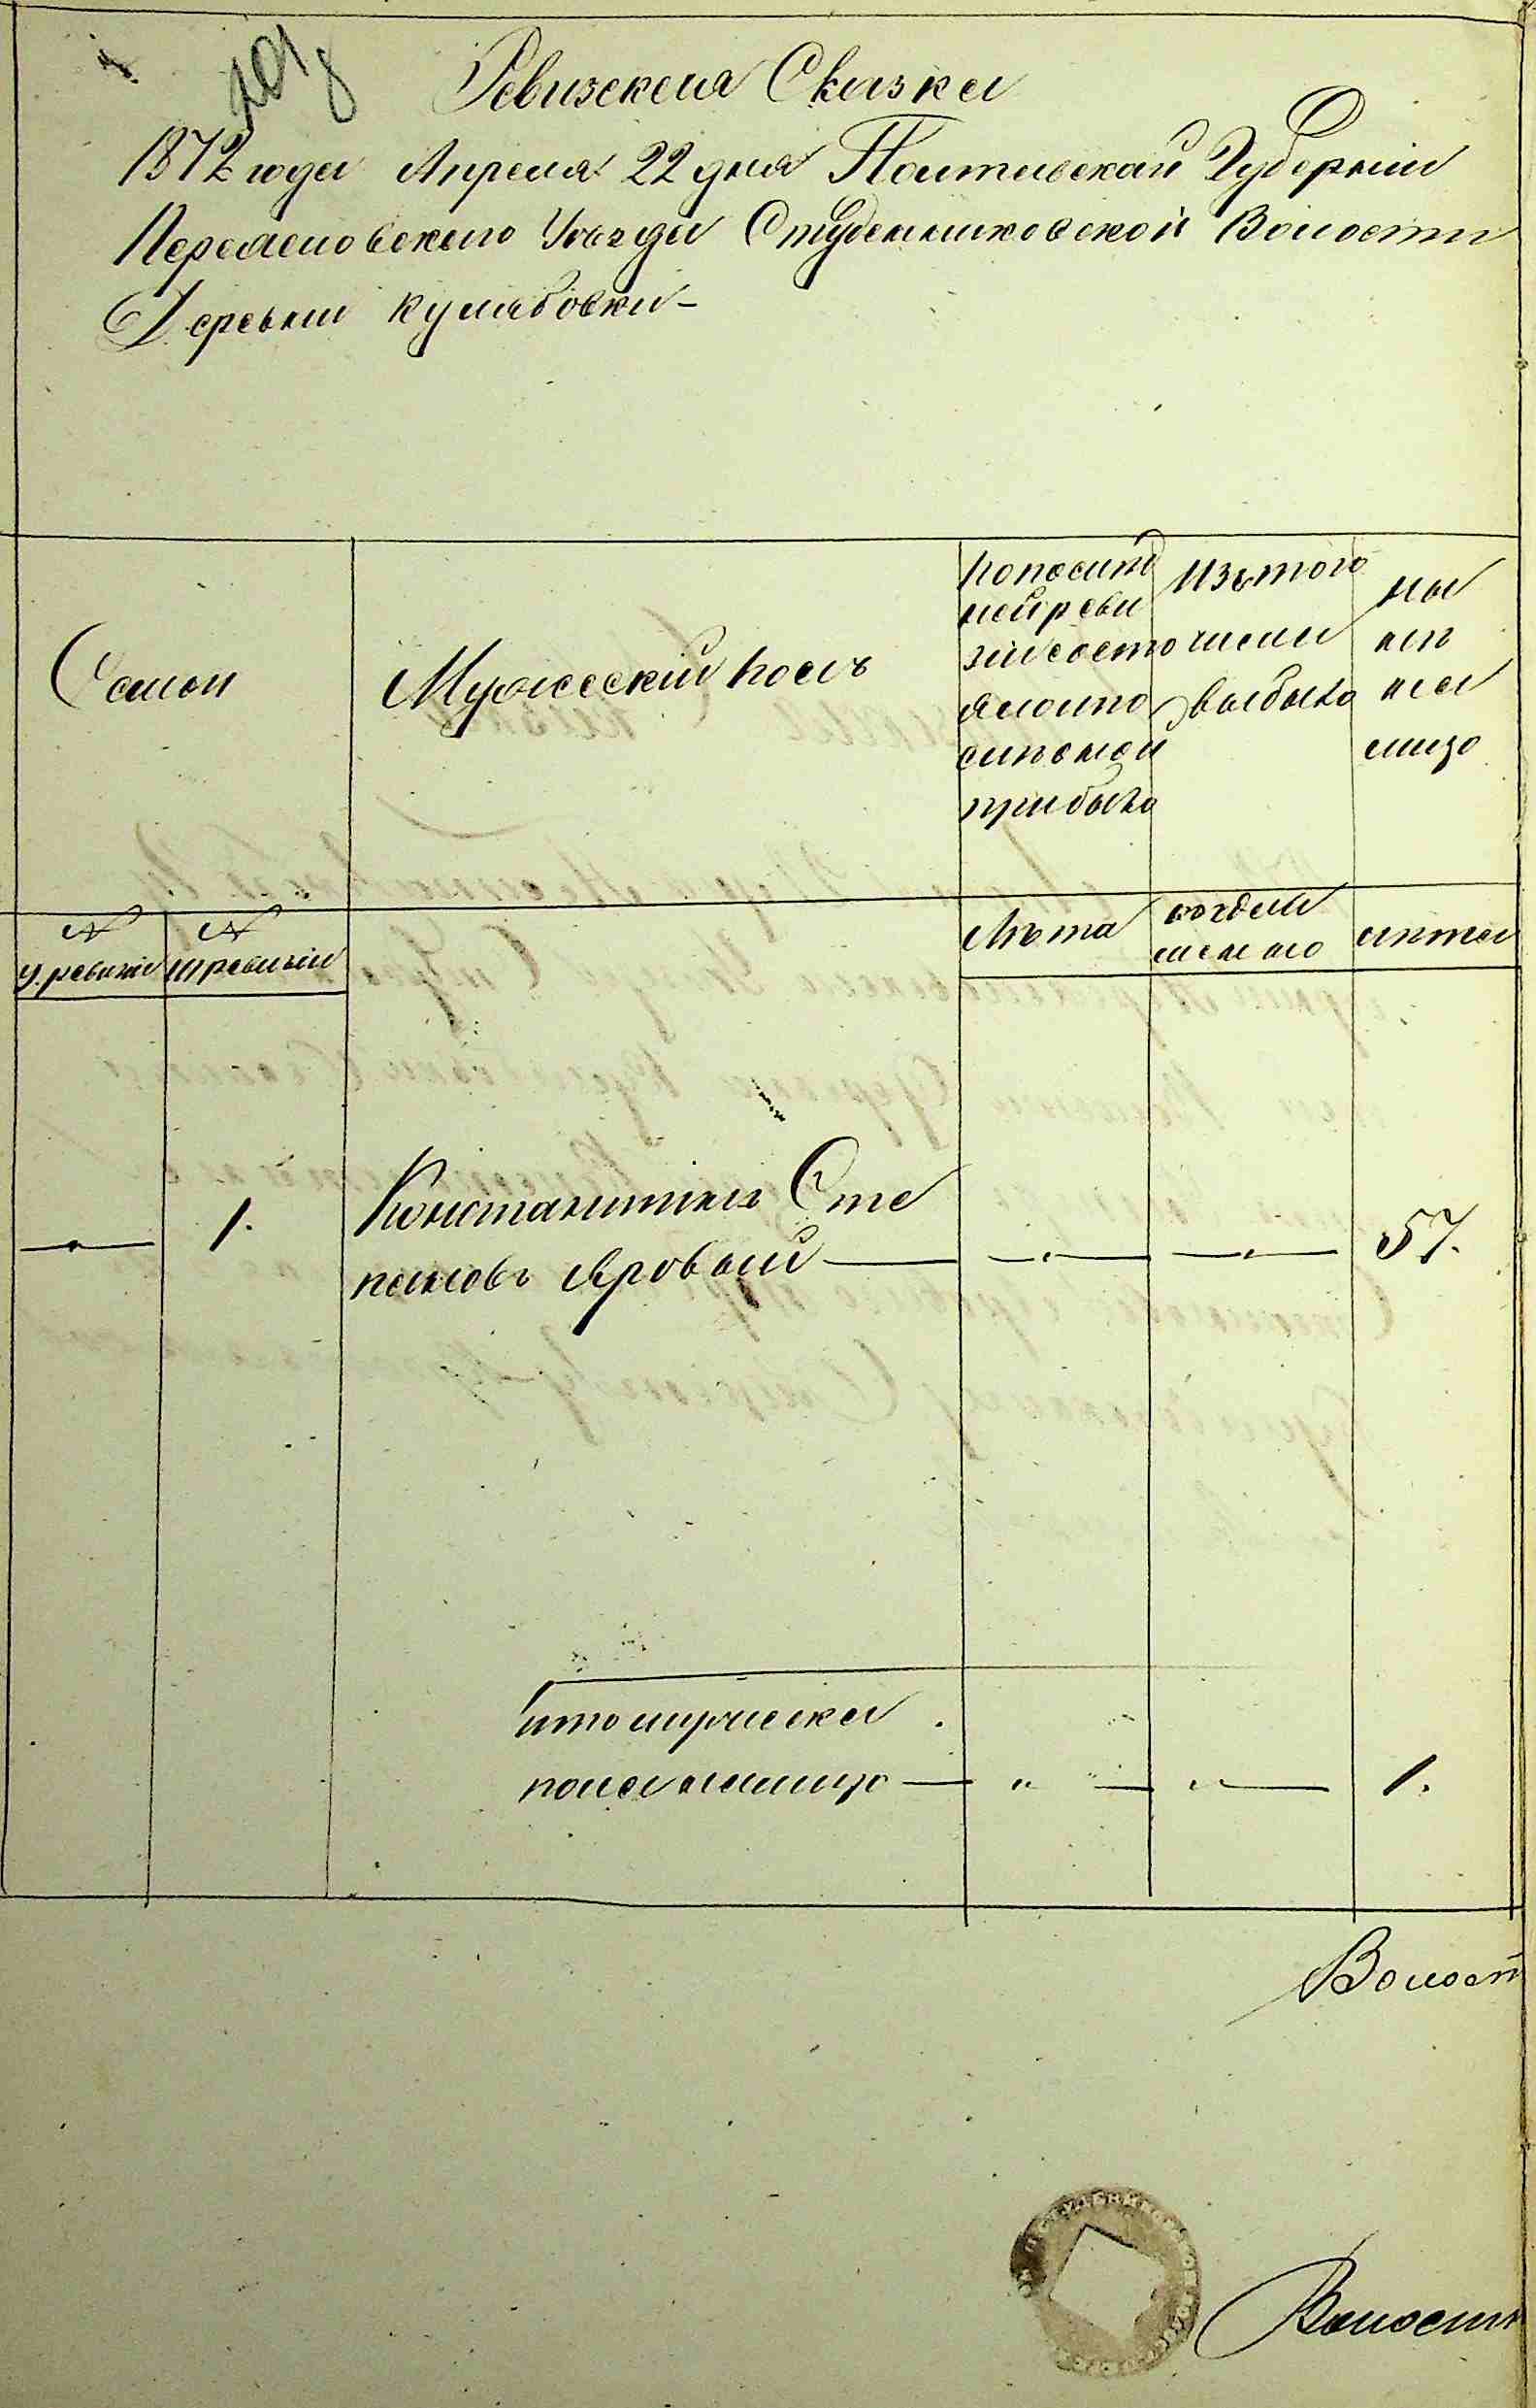 Ревизская Сказка
1872 года Апреля 22 дня Полтавской Губернии
Переяславского Уѣзда Студенниковской Волости
Деревни Кулябовки
Семьи
Мужеский полъ
По послѣд
ней реви
зіи состо
яло и по
слѣ оной
прибыло
Изъ того
числа
выбыло
ны
нѣ
на
лицо
№
ревизіи
№
ревизіи
Лѣта
когда
именно
лѣта
1.
Константинъ Сте
пановъ Яровый
57.
Итого мужеска
пола налицо
1.
Волост
Волост